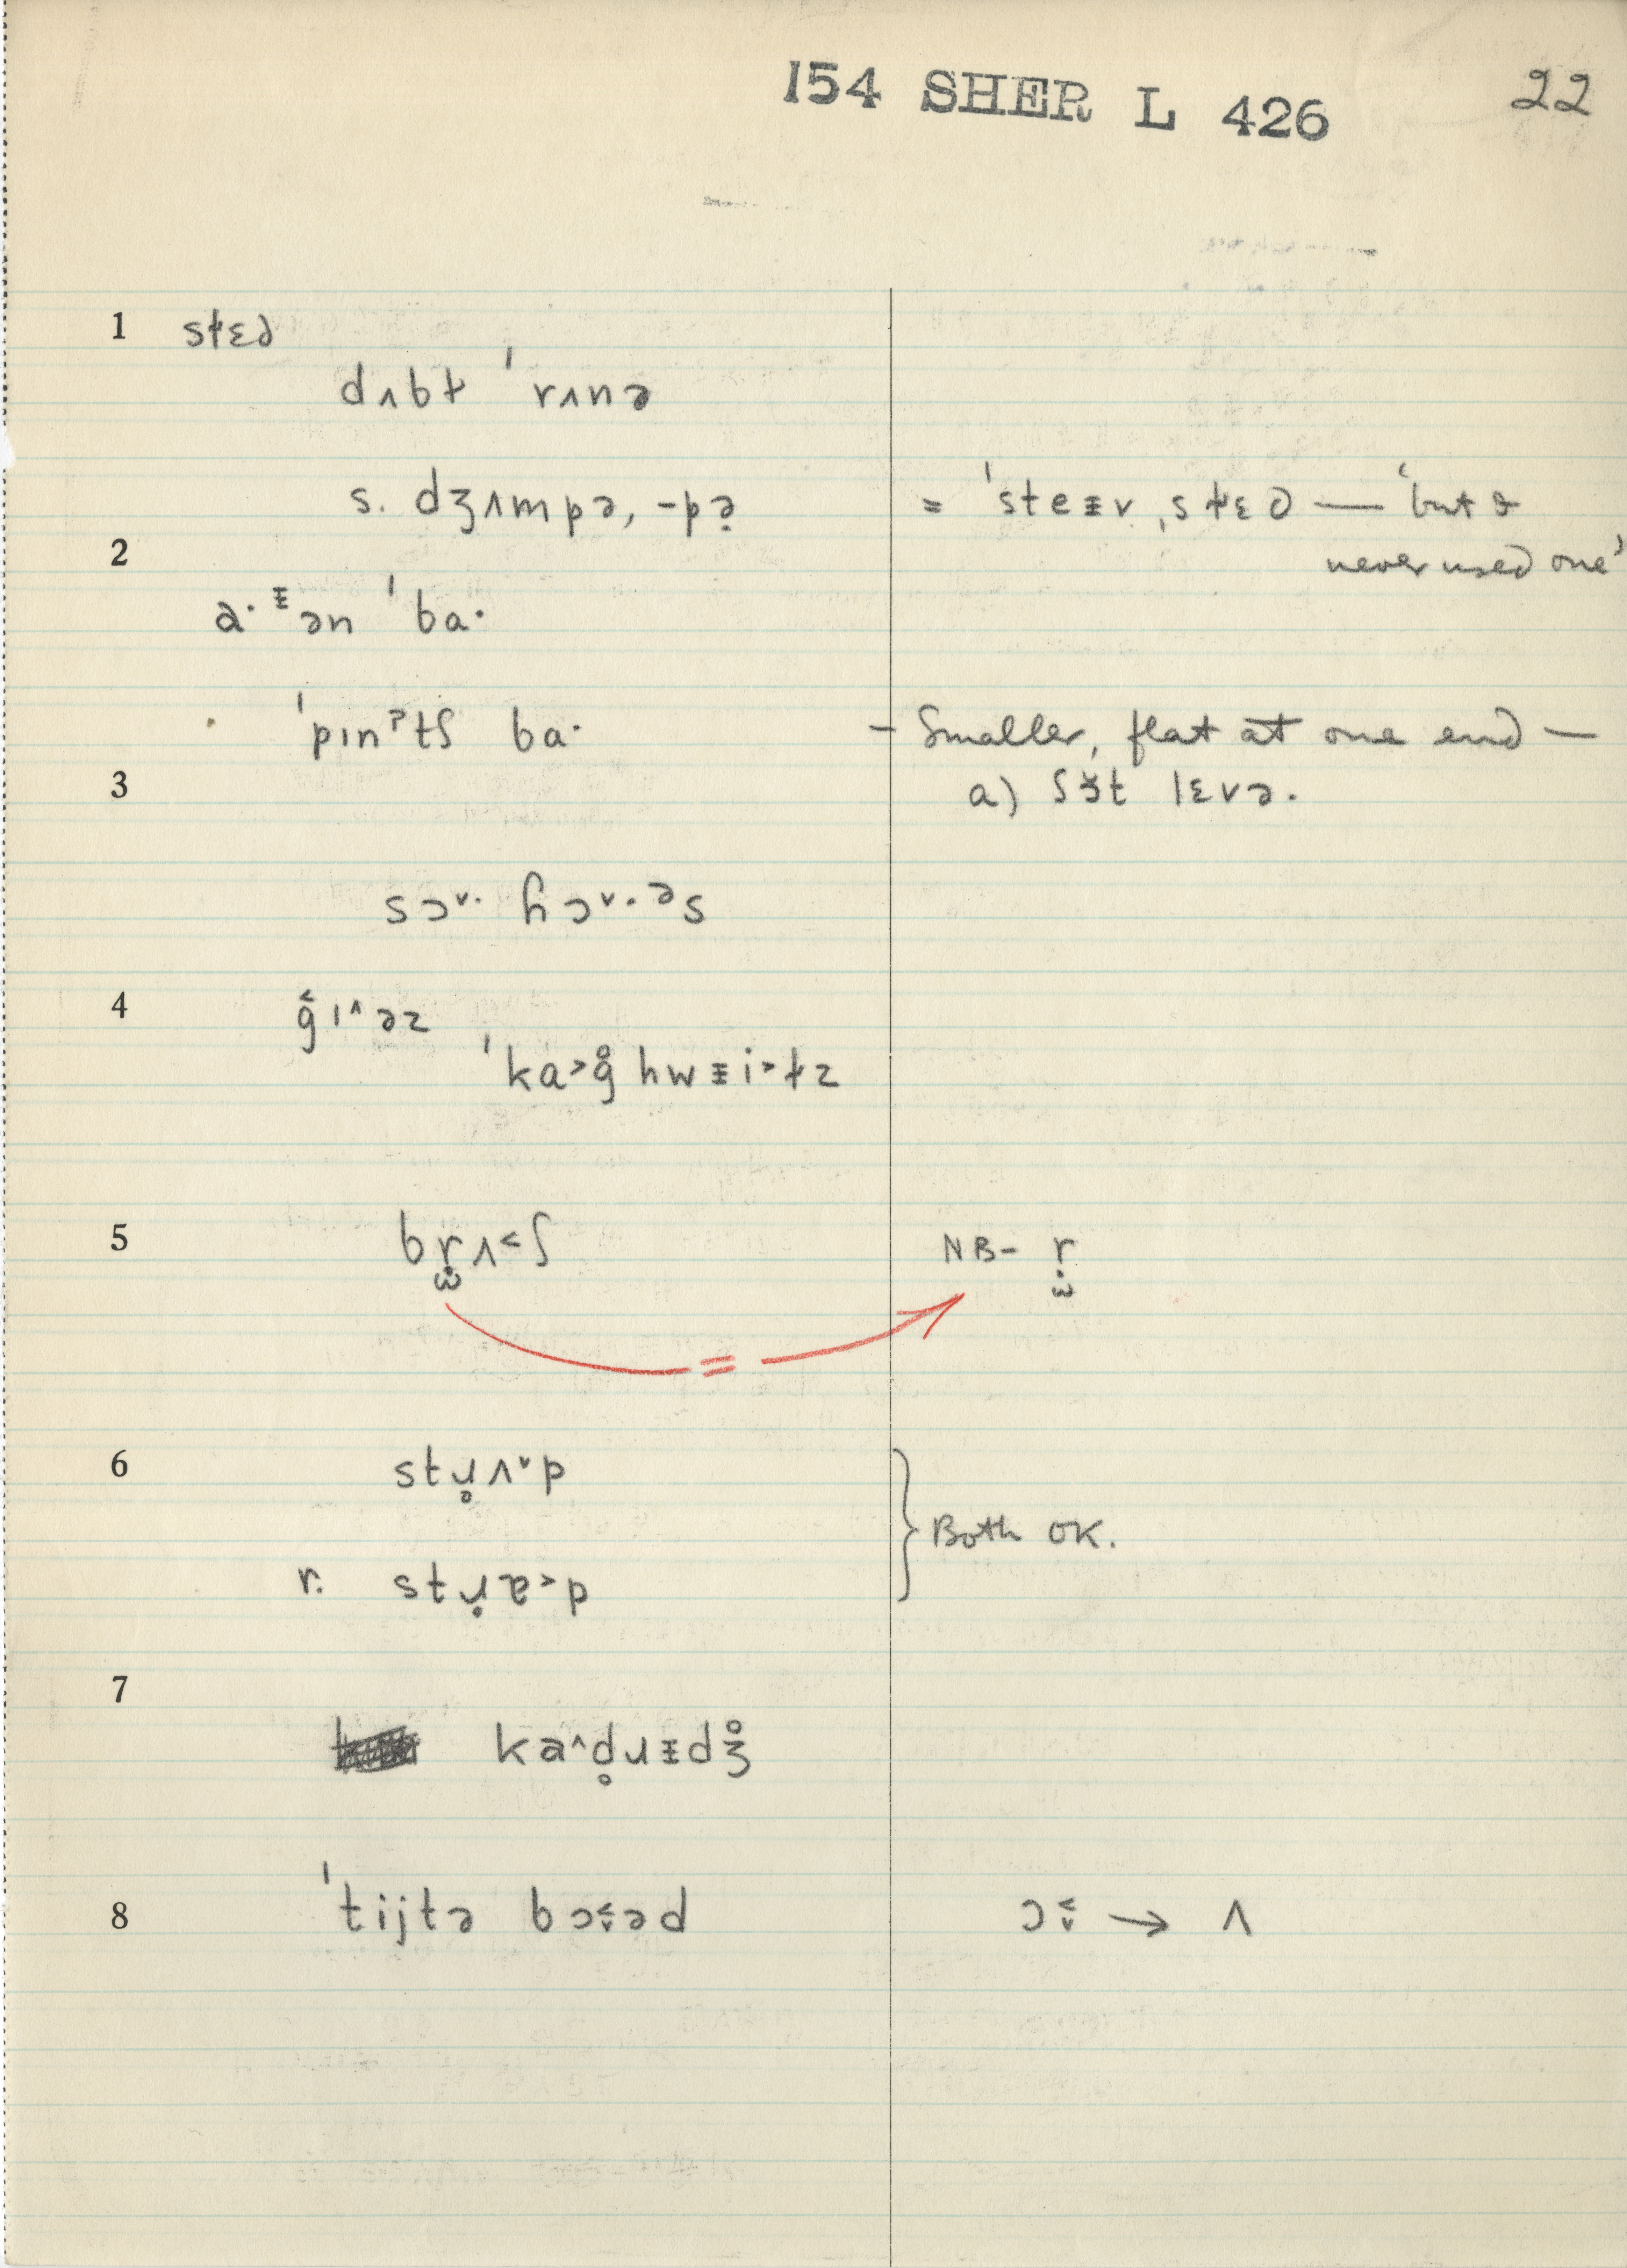 154 SHER L 426 22
1 st̵ɛə
dʌbt̵ ˈrʌnə
s. dʒʌmpə, -pə̣ = ˈsteᵻv ˌst̵ɛə — ‘but
2 never used one’
a· ᵻən ˈba·
ˈpɪnˀtʃ ba· – Smaller, flat at one end —
3 a) ʃɜ̆t lɛvə.
sɔ˅· ɦɔ˅·əs
4 g̑ɪ˄əz
ˈka˃g̊ hwᵻi˃t̵z
5 bṛʌ˂ʃ NB– ṛ
=
6 stɹ̥ʌ˅p
Both OK.
r. stɹ̣ɐ˃p
7
ka˄d̥ɹᵻdʒ̊
8 ˈtijtə bɔ˂˅əd ɔ˂˅ → ʌ